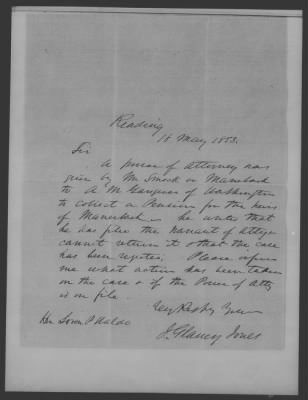 Reading
18 May 1853.
Sir
A power of Attorney was
given by Mr Smeck or
to A M Gangewer of Washington
to collect a Pension for the heirs
of he writes that
he has filed the warrant of Attorney
cannot return it & that the case
has been rejected. Please inform
me what action has been taken
on the case & if the Power of Atty
is on file.
Very Resply Yours
J. Glancy Jones
Hon Loren P Waldo